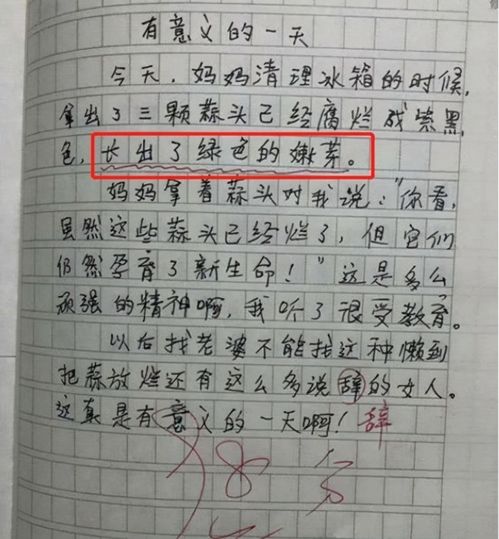 有意义的一天
今天，妈妈清理冰箱的时候，
拿出了三颗蒜头已经腐烂成紫黑
色，长出了绿色的嫩芽。
妈妈拿着蒜头对我说："你看，
虽然这些蒜头已经烂了，但它们
仍然孕育了新生命！"这是多么
顽强的精神啊，我听了很受教育。
以后找老婆不能找这种懒到
把蒜放烂还有这么多说辞的女人。
这真是有意义的一天啊！辞